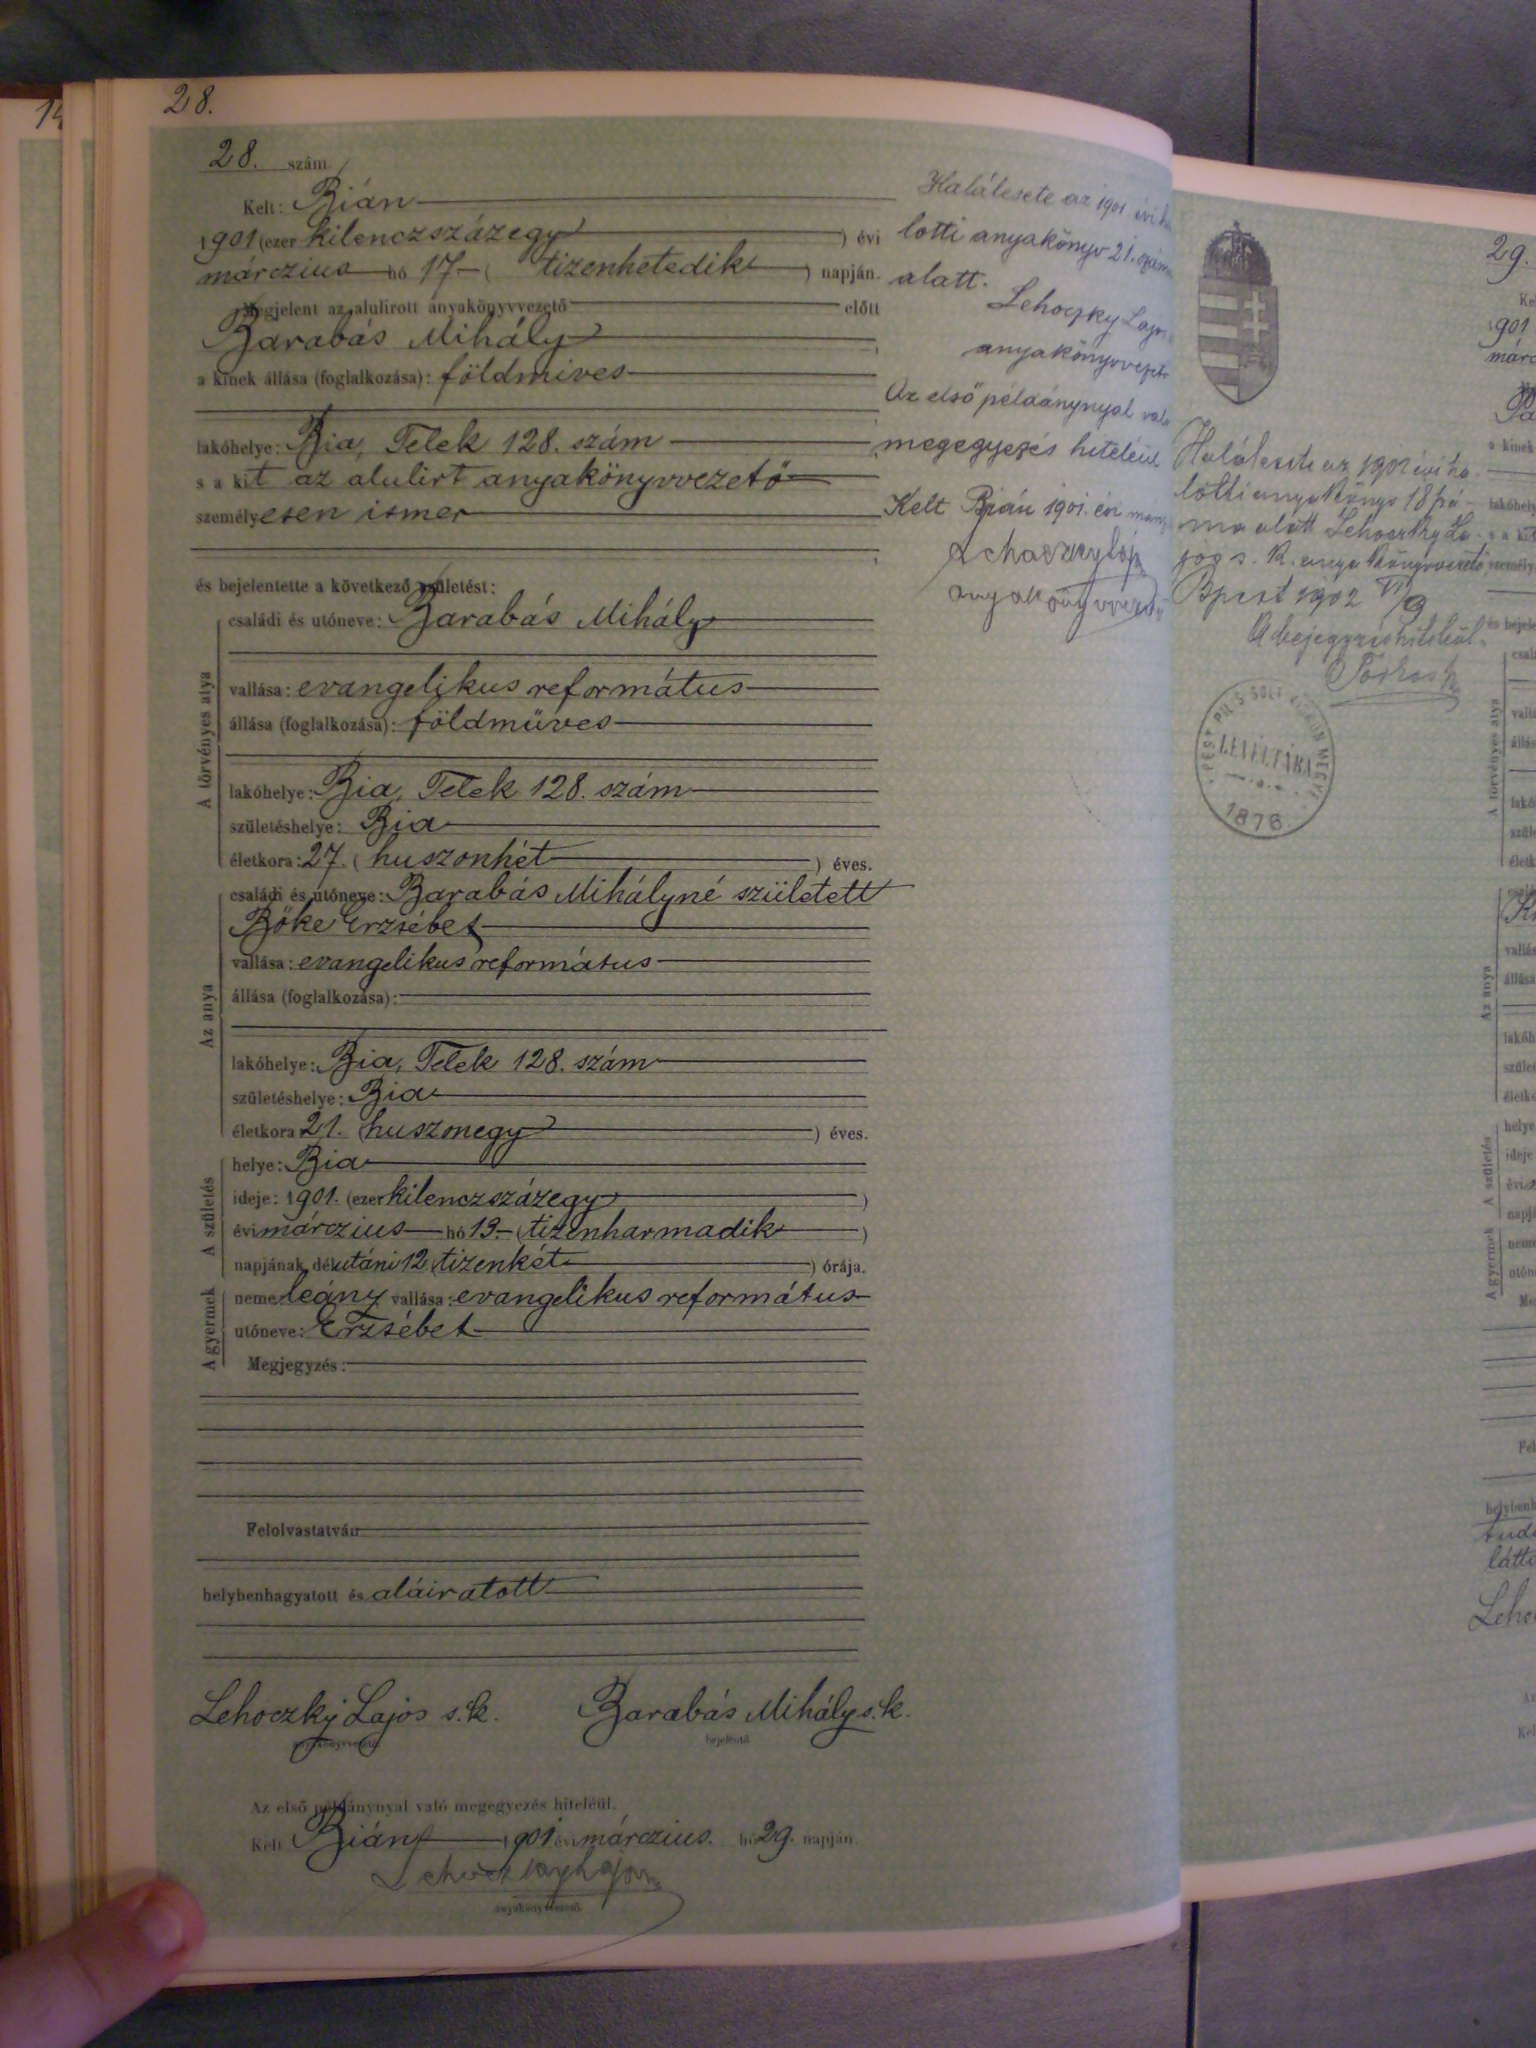 14
28.
28. szám.
Kelt: Bián
1901 (ezer kilenczszázegy) évi
márczius hó 17 (tizenhetedik) napján.
Megjelent az alulirott anyakönyvvezető előtt
Barabás Mihály
a kinek állása (foglalkozása): földmives
lakóhelye: Bia, Telek 128. szám
s a kit az alulirt anyakönyvvezető
személyesen ismer
és bejelentette a következő születést:
A törvényes atya
családi és utóneve: Barabás Mihály
vallása: evangelikus református
állása (foglalkozása): földmüves
lakóhelye: Bia, Telek 128. szám
születéshelye: Bia
életkora: 27. (huszonhét) éves.
Az anya
családi és utóneve: Barabás Mihályné született
Bőke Erzsébet
vallása: evangelikus református
állása (foglalkozása):
lakóhelye: Bia, Telek 128. szám
születéshelye: Bia
életkora 21. (huszonegy) éves.
A születés
helye: Bia
ideje: 1901. (ezer kilenczszázegy)
évi márczius hó 13 (tizenharmadik)
napjának délutáni 12 (tizenkét) órája.
A gyermek
neme: leány vallása: evangelikus református
utóneve: Erzsébet
Megjegyzés:
Felolvastatván
helybenhagyatott és aláiratott
Lehoczky Lajos s.k. Barabás Mihály s.k.
anyakönyvvezető bejelentő
Az első példánynyal való megegyezés hiteléül.
Kelt Bián 1901 évi márczius. hó 29. napján.
Lehoczky Lajos
anyakönyvvezető
Halálesete az 1901 évi ha
lotti anyakönyv 21. szám
alatt.
Lehoczky Lajos
anyakönyvvezető
Az első példánynyal való
megegyezés hiteléül
Kelt Bián 1901. évi
Lehoczky Lajos
anyakönyvvezető
Halálesete az 1902 évi ha-
lotti anyakönyv 18 szá-
ma alatt Lehoczky La-
jos s. k. anyakönyvvezető
Bpest 1902 VI/9
A bejegyzés hiteléül
PEST PILIS SOLT KISKUN MEGYE
LEVÉLTÁRA
1876
29.
1901